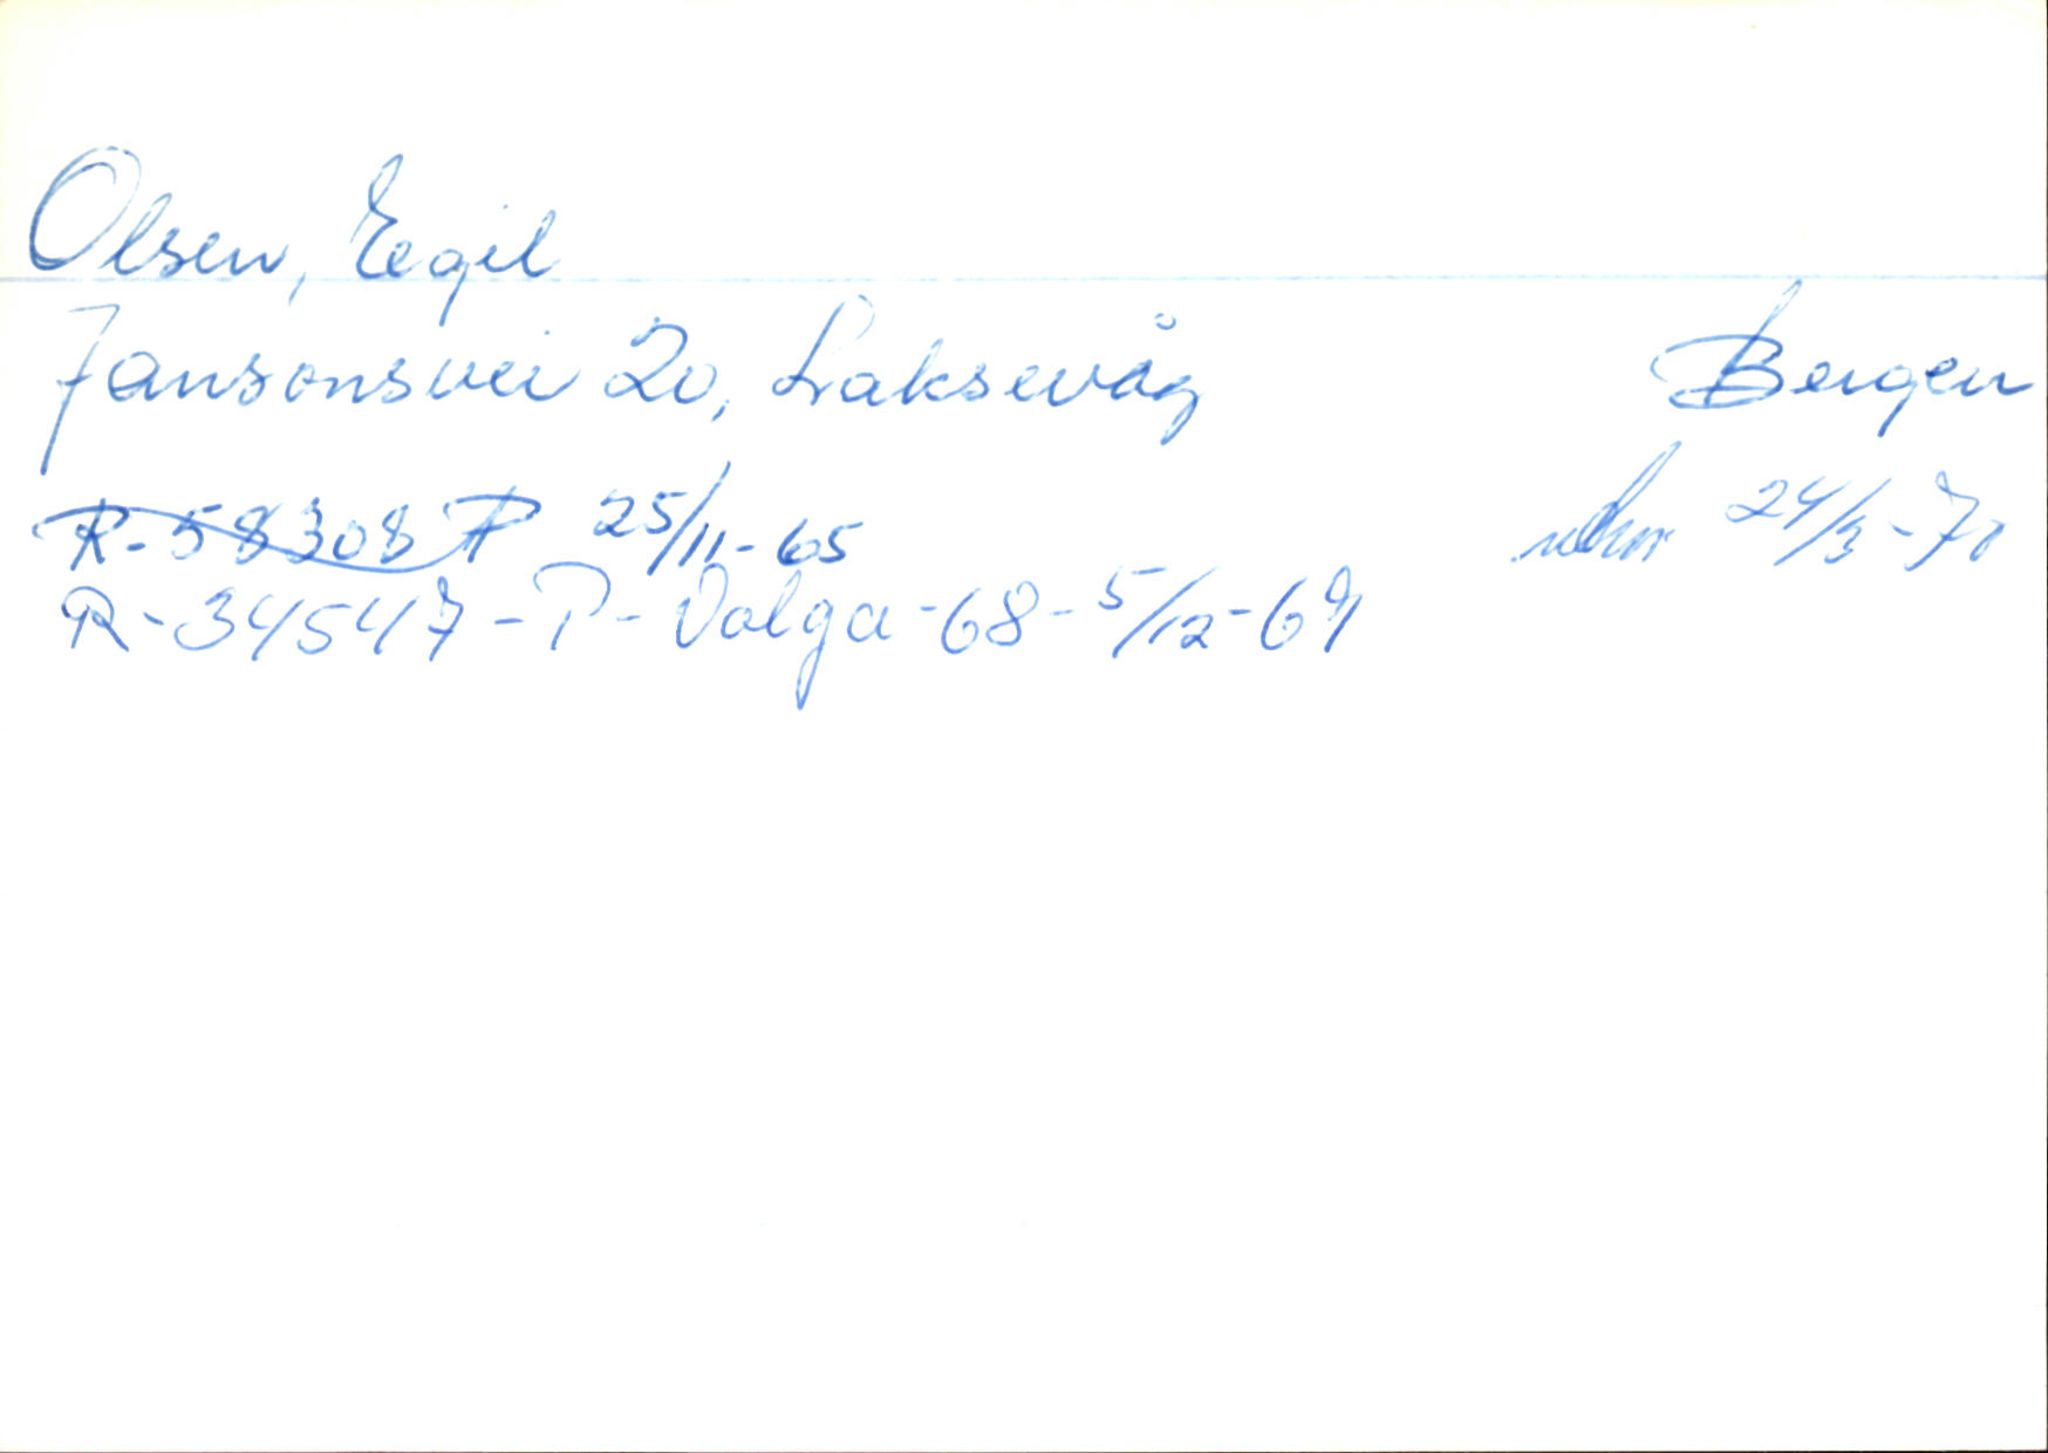 Olsen, Egil
Jansonsvei 20, Laksevåg Bergen
R-58308 P 25/11-65 24/3-70
R-34547-P-Volga-68-5/12-69